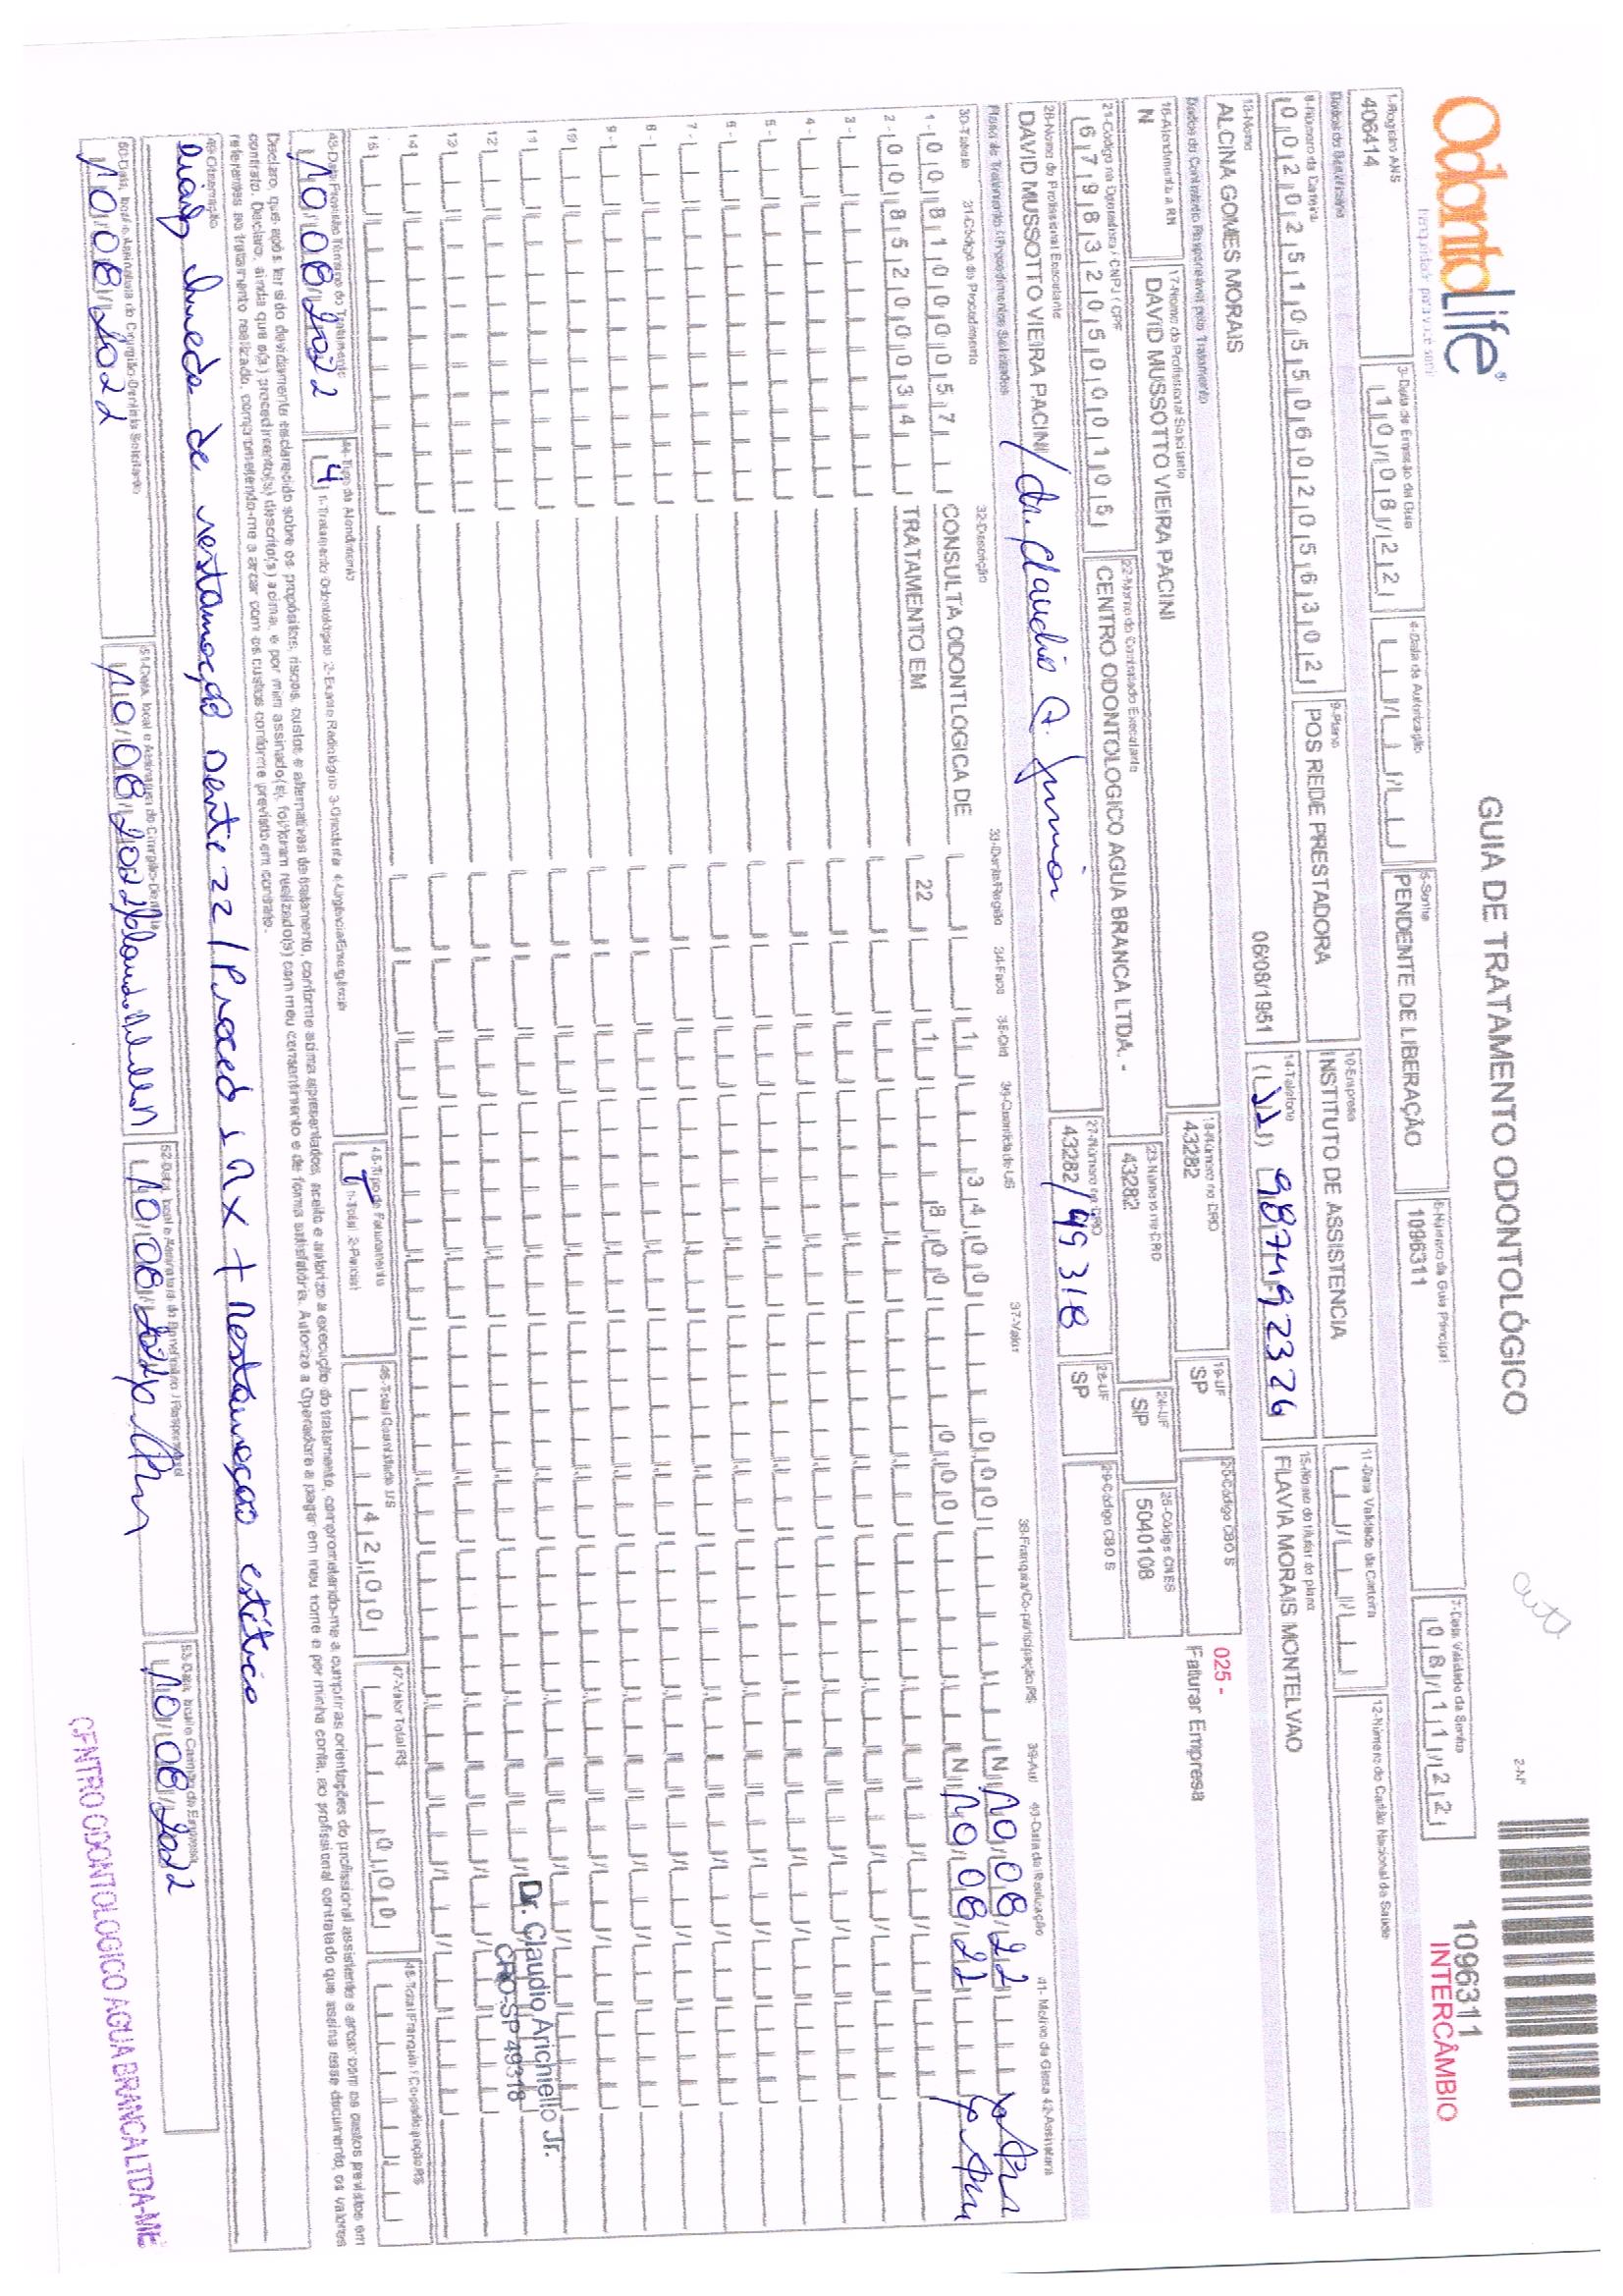 OdontoLife®
GUIA DE TRATAMENTO ODONTOLÓGICO
2-Nº
1096311
INTERCÂMBIO
1-Registro ANS
406414
3-Data de Emissão da Guia
10/08/22
4-Data de Autorização
5-Senha
PENDENTE DE LIBERAÇÃO
6-Número da Guia Principal
1096311
7-Data Validade da Senha
08/11/22
Dados do Beneficiário
8-Número da Carteira
00202510550602056302
9-Plano
POS REDE PRESTADORA
10-Empresa
INSTITUTO DE ASSISTENCIA
11-Data Validade da Carteira
12-Número do Cartão Nacional de Saúde
13-Nome
ALCINA GOMES MORAIS
06/08/1951
14-Telefone
987492326
15-Nome do titular do plano
FLAVIA MORAIS MONTELVAO
Dados do Contratado Responsável pelo Tratamento
16-Atendimento a RN
N
17-Nome do Profissional Solicitante
DAVID MUSSOTTO VIEIRA PACINI
18-Número no CRO
43282
19-UF
SP
20-Código CBO S
025 -
Faturar Empresa
21-Código na Operadora / CNPJ / CPF
67983205000105
22-Nome do Contratado Executante
CENTRO ODONTOLOGICO AGUA BRANCA LTDA. -
23-Número no CRO
43282
24-UF
SP
25-Código CNES
5040108
26-Nome do Profissional Executante
DAVID MUSSOTTO VIEIRA PACINI / Dr. Claudio A. Junior
27-Número no CRO
43282/49318
28-UF
SP
29-Código CBO S
Plano de Tratamento / Procedimentos Solicitados
30-Tabela 31-Código do Procedimento 32-Descrição 33-Dente/Região 34-Face 35-Qtd 36-Quantidade US 37-Valor 38-Franquia/Co-participação R$ 39-Aut 40-Data de Realização 41- Motivo da Glosa 42-Assinatura
1 - 00 81000057 CONSULTA ODONTLOGICA DE 1 34,00 0,00 N 10/08/22
2 - 00 85200034 TRATAMENTO EM 22 1 8,00 0,00 N 10/08/22
3 -
4 -
5 -
6 -
7 -
8 -
9 -
10
11
12
13
14
15
Dr. Claudio Arichiello Jr.
CRO-SP 49318
43-Data Previsão Término do Tratamento
10/08/2022
44-Tipo de Atendimento
4 1-Tratamento Odontológico 2-Exame Radiológico 3-Ortodontia 4-Urgência/Emergência
45-Tipo de Faturamento
1-Total 2-Parcial
46-Total Quantidade US
42,00
47-Valor Total R$
0,00
48-Total Franquia / Co-participação R$
Declaro, que após ter sido devidamente esclarecido sobre os propósitos, riscos, custos e alternativas de tratamento, conforme acima apresentados, aceito e autorizo a execução do tratamento, comprometendo-me a cumprir as orientações do profissional assistente e arcar com os custos previstos em
contrato. Declaro, ainda que o(s) procedimento(s) descrito(s) acima, e por mim assinado(s), foi/foram realizado(s) com meu consentimento e de forma satisfatória. Autorizo a Operadora a pagar em meu nome e por minha conta, ao profissional contratado que assina esse documento, os valores
referentes ao tratamento realizado, comprometendo-me a arcar com os custos conforme previsto em contrato.
49-Observação
de restauração dente 22 / Proced 1 RX + Restauração estético
50-Data, local e Assinatura do Cirurgião-Dentista Solicitante
10/08/2022
51-Data, local e Assinatura do Cirurgião-Dentista
10/08/2022
52-Data, local e Assinatura do Beneficiário / Responsável
10/08/
53-Data, local e Carimbo da Empresa
10/08/2022
CENTRO ODONTOLOGICO AGUA BRANCA LTDA-ME